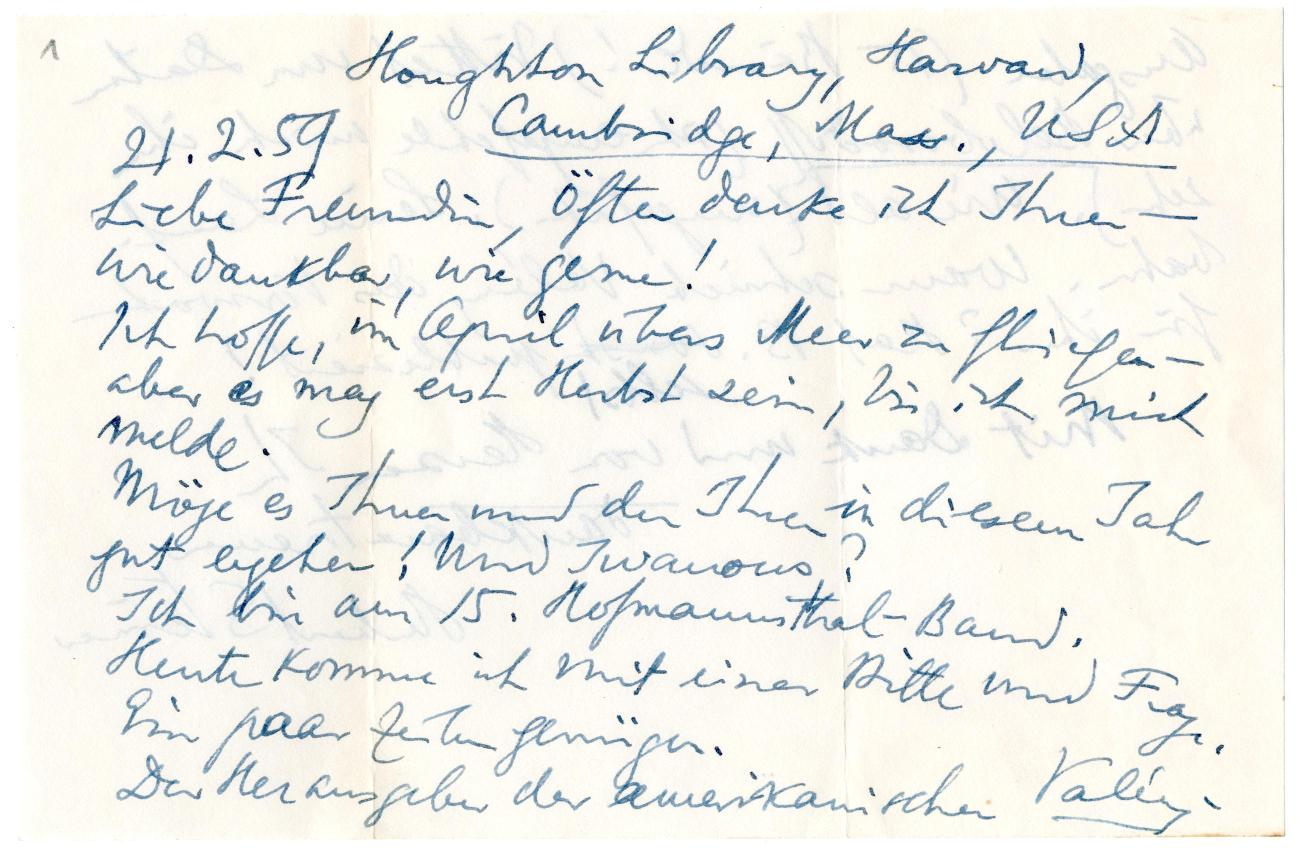 1
Houghton Library, Harvard,
21.2.59 Cambridge, Mass., USA
Liebe Freundin, Öfter denke ich Ihrer —
wie dankbar, wie gerne!
Ich hoffe, im April übers Meer zu fliegen —
aber es mag erst Herbst sein, bis ich mich
melde.
Möge es Ihnen und den Ihren in diesem Jahr
gut ergehen! Und Iwanows?
Ich bin am 15. Hofmannsthal-Band.
Heute komme ich mit einer Bitte und Frage.
Ein paar Zeilen genügen.
Der Herausgeber der amerikanischen Valéry-